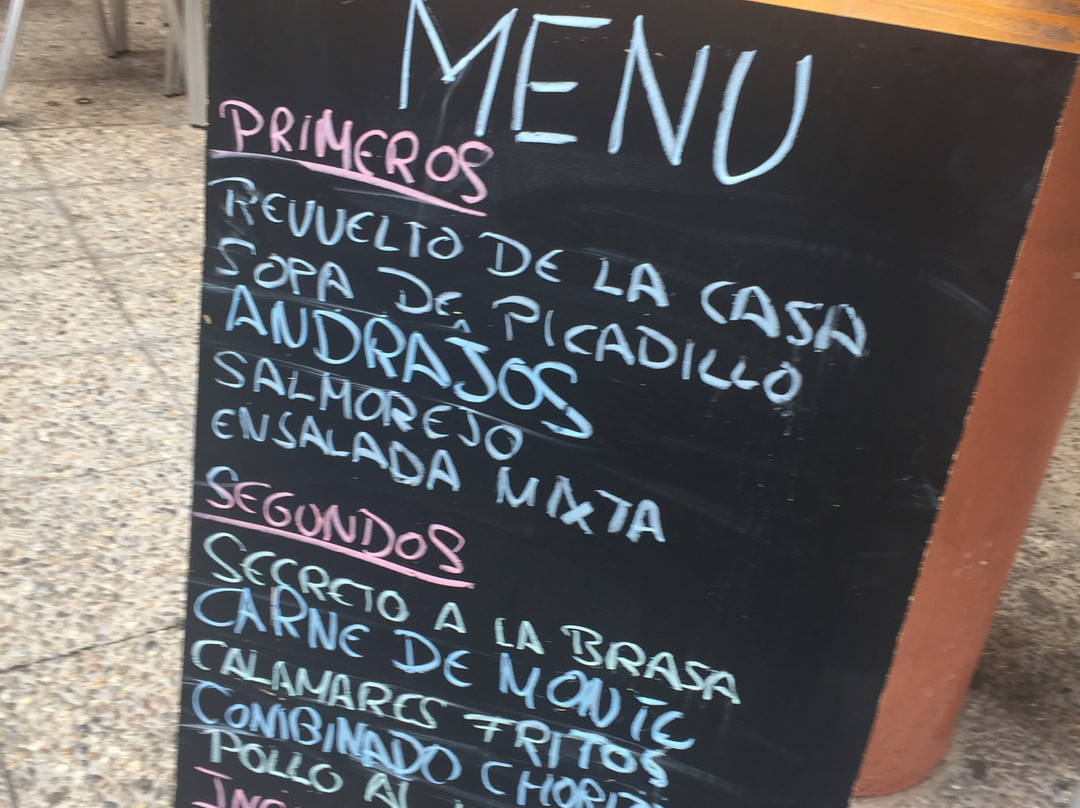 MENU
PRIMEROS
REVUELTO DE LA CASA
SOPA DE PICADILLO
ANDRAJOS
SALMOREJO
ENSALADA MIXTA
SEGUNDOS
SECRETO A LA BRASA
CARNE DE MONTE
CALAMARES FRITOS
COMBINADO
POLLO AL